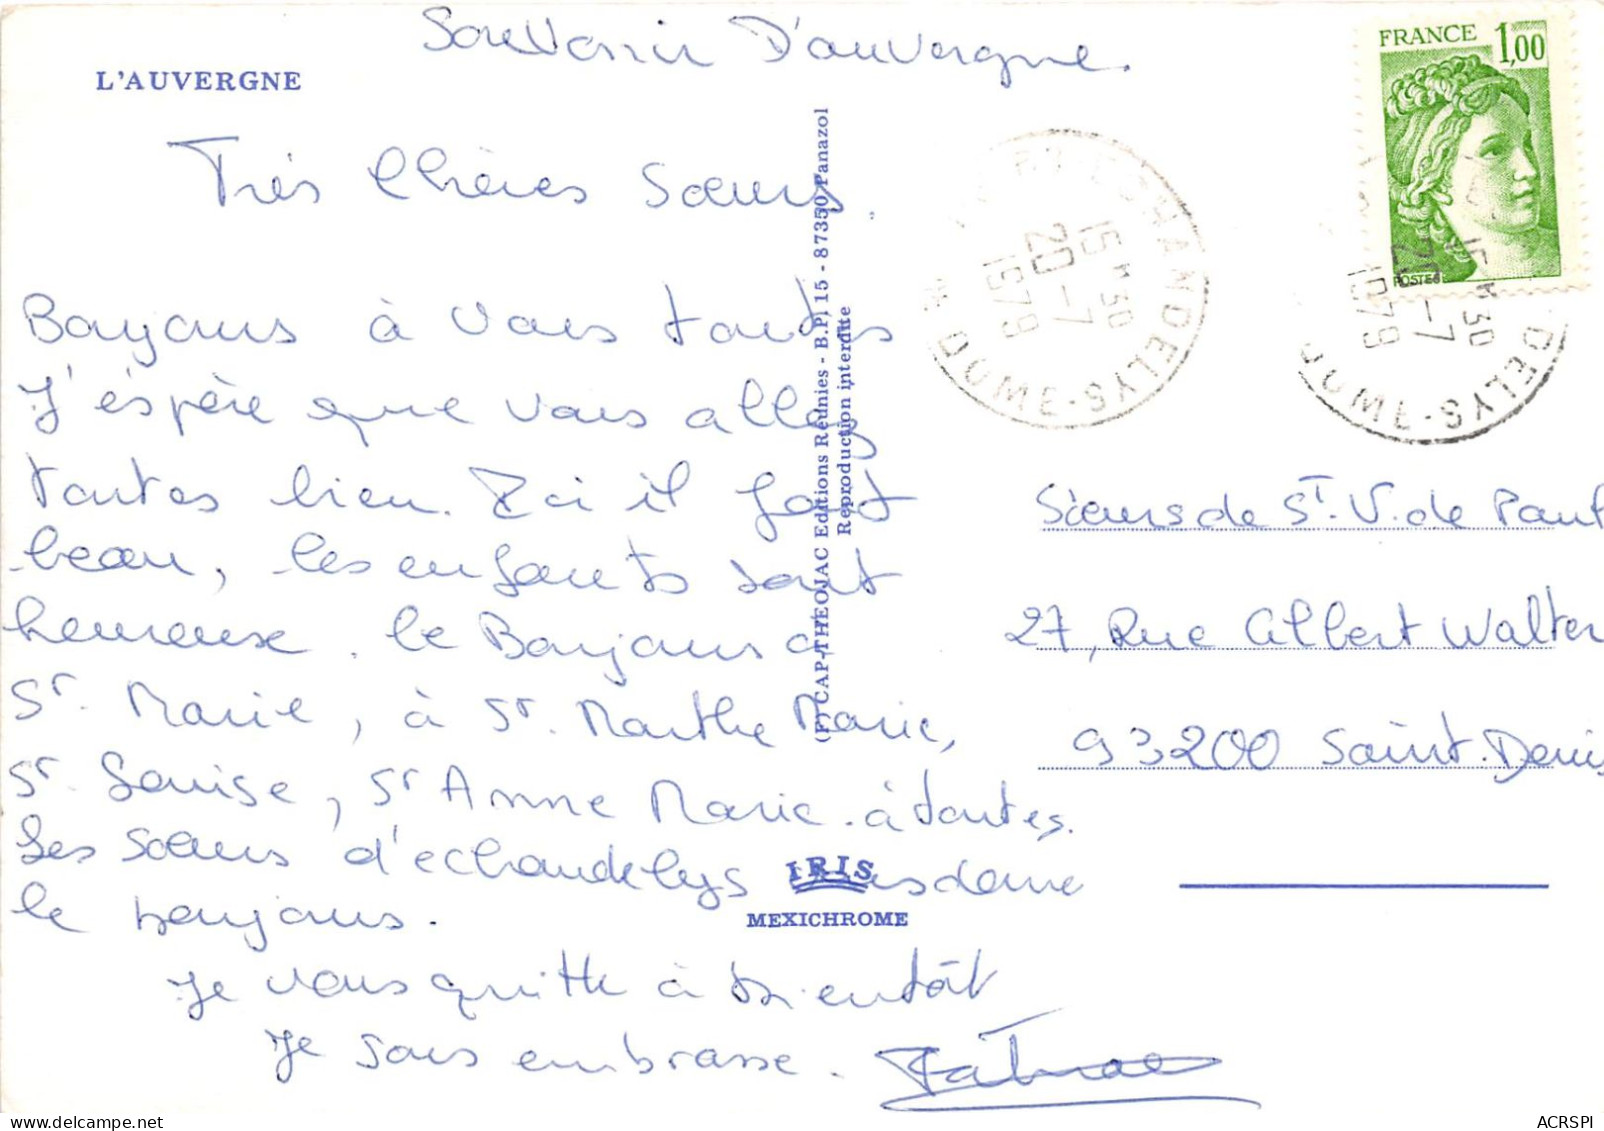 Souvenir D'auvergne.
L'AUVERGNE
Très Chères Sœurs.
Bonjours à vous toutes
J'éspère que vous allez
toutes bien. Ici il fait
beau, les enfants sont
heureuse. le Bonjours a
Sr. Marie, à Sr. Marthe Marie,
Sr. Louise, Sr Anne Marie. à toutes.
Les sœurs d'echandelys vous donne
le bonjours.
Je vous quitte à bientôt
Je vous embrasse.
(F) CAP-THEOJAC Editions Réunies - B.P. 15 - 87350 Panazol
Reproduction interdite
IRIS
MEXICHROME
FRANCE 1,00
POSTES
ECHANDELYS
15 H 30
20 - 7
1979
DOME
DELYS
15 H 30
20 - 7
1979
DOME
Sœurs de St. V. de Paul
27, Rue Albert Walter
93200 Saint. Denis
ACRSPI